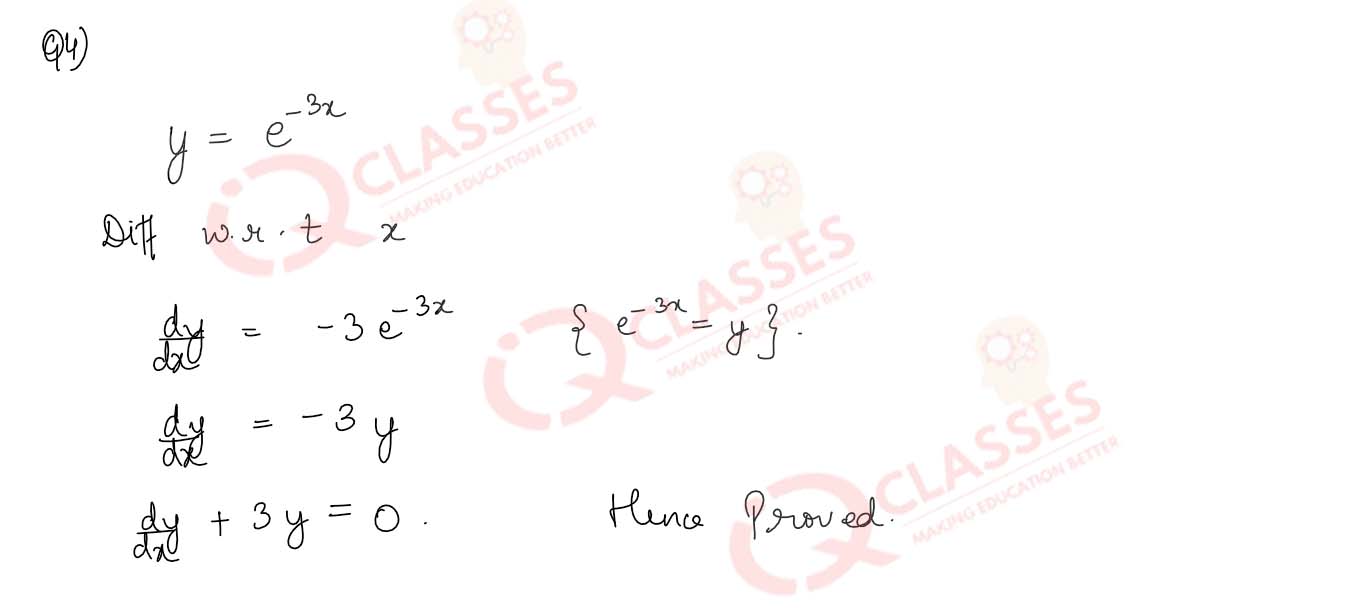 Q4)
y = e^{-3x}
Diff w.r.t x
dy/dx = -3 e^{-3x} { e^{-3x} = y }.
dy/dx = -3 y
dy/dx + 3y = 0. Hence Proved.
iQ CLASSES
MAKING EDUCATION BETTER
iQ CLASSES
MAKING EDUCATION BETTER
iQ CLASSES
MAKING EDUCATION BETTER